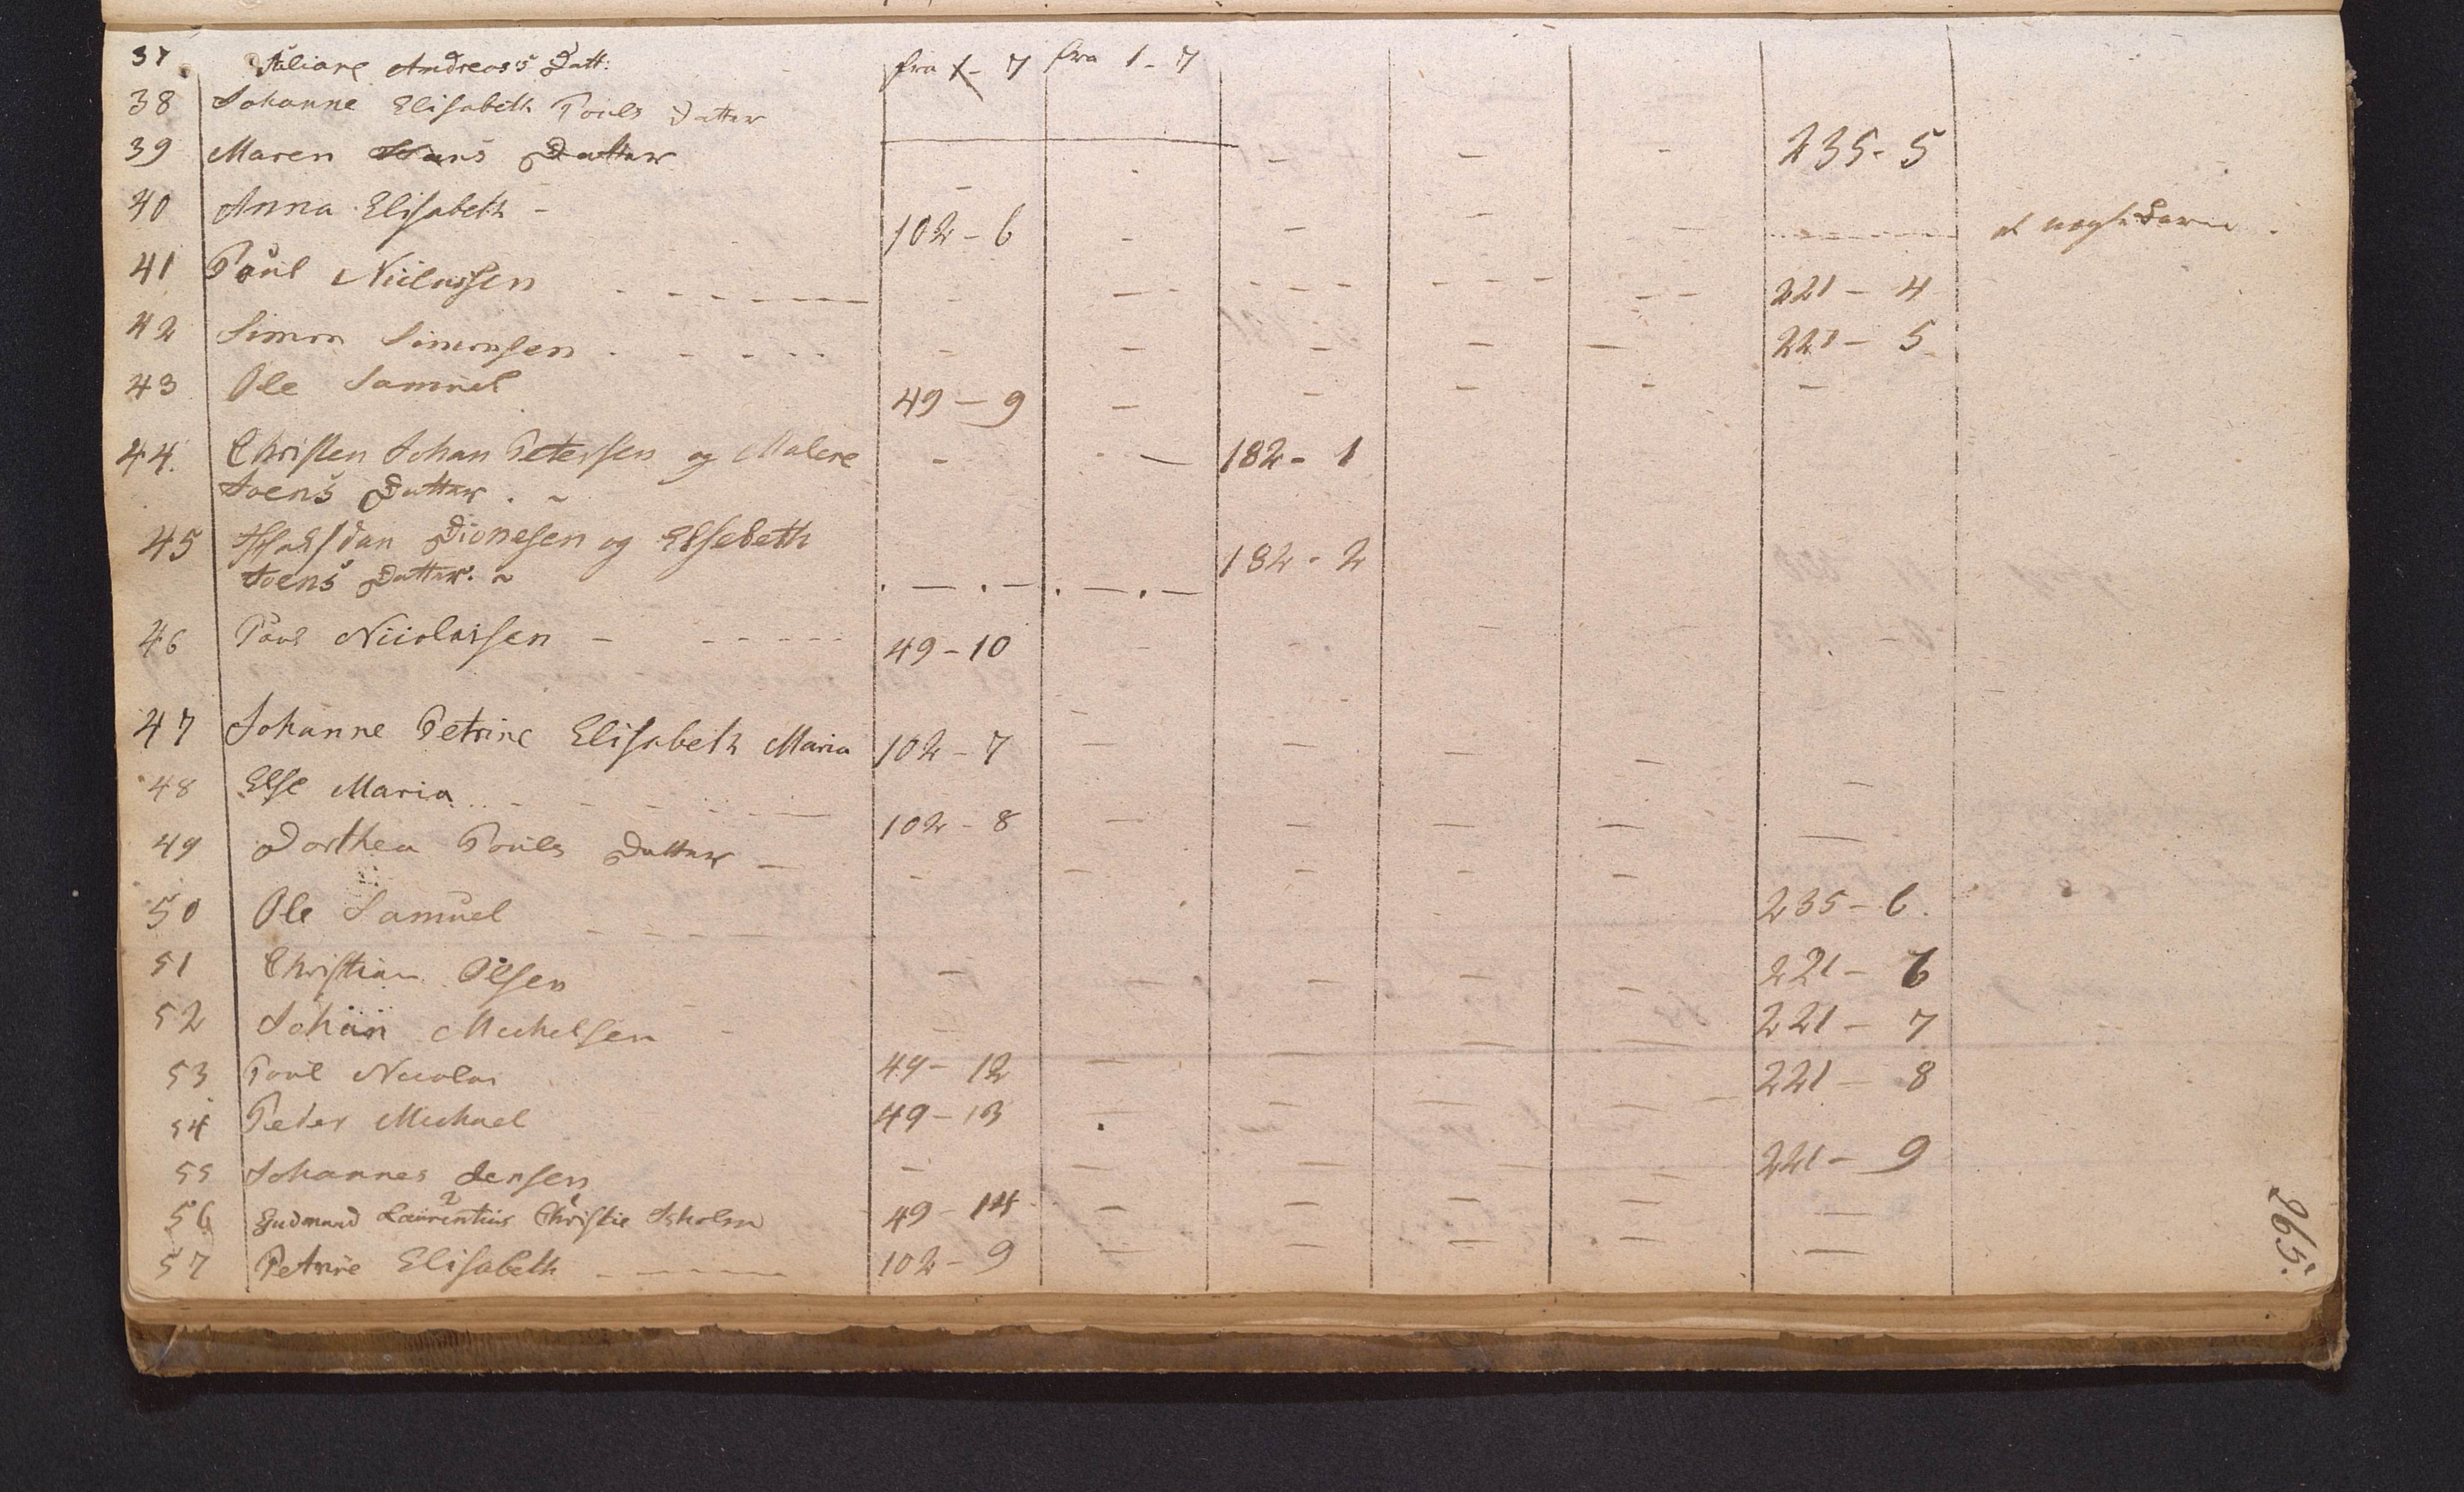 37 Juliane Andreas's Datt: fra 1-7 fra 1-7
38 Johanne Elisabeth Pouls Datter
39 Maren Hans Datter - - - 235-5
40 Anna Elisabeth - 102-6 - - - -
41 Poul Niclassen - - - - - 221-4
42 Simon Simonsen - - - - - 221-5
43 Ole Samuel 49-9 - - - - -
44. Christen Johan Petersen og Malene - - 182-1
Joens Datter.
45 Dionesen og Elsebeth 182-2
Joens Datter.
46 Poul Niclassen - 49-10
47 Johanne Petrine Elisabeth Maria 102-7 - - - -
48 Else Maria 102-8 - - - - -
49 Dorthea Pouls Datter - - - - - - 235-6.
50 Ole Samuel
51 Christian Olsen - - - - - 221-6
52 Johan Michelsen - 221-7
53 Poul Nicolai 49-12 - - - - 221-8
54 Peter Michael 49-13 - - - -
55 Johannes Jensen - - - - - 221-9
56 Gudmand Laurentius Christie Isholm 49-14 - - - - -
57 Petrine Elisabeth 102-9 - - - - -
265.